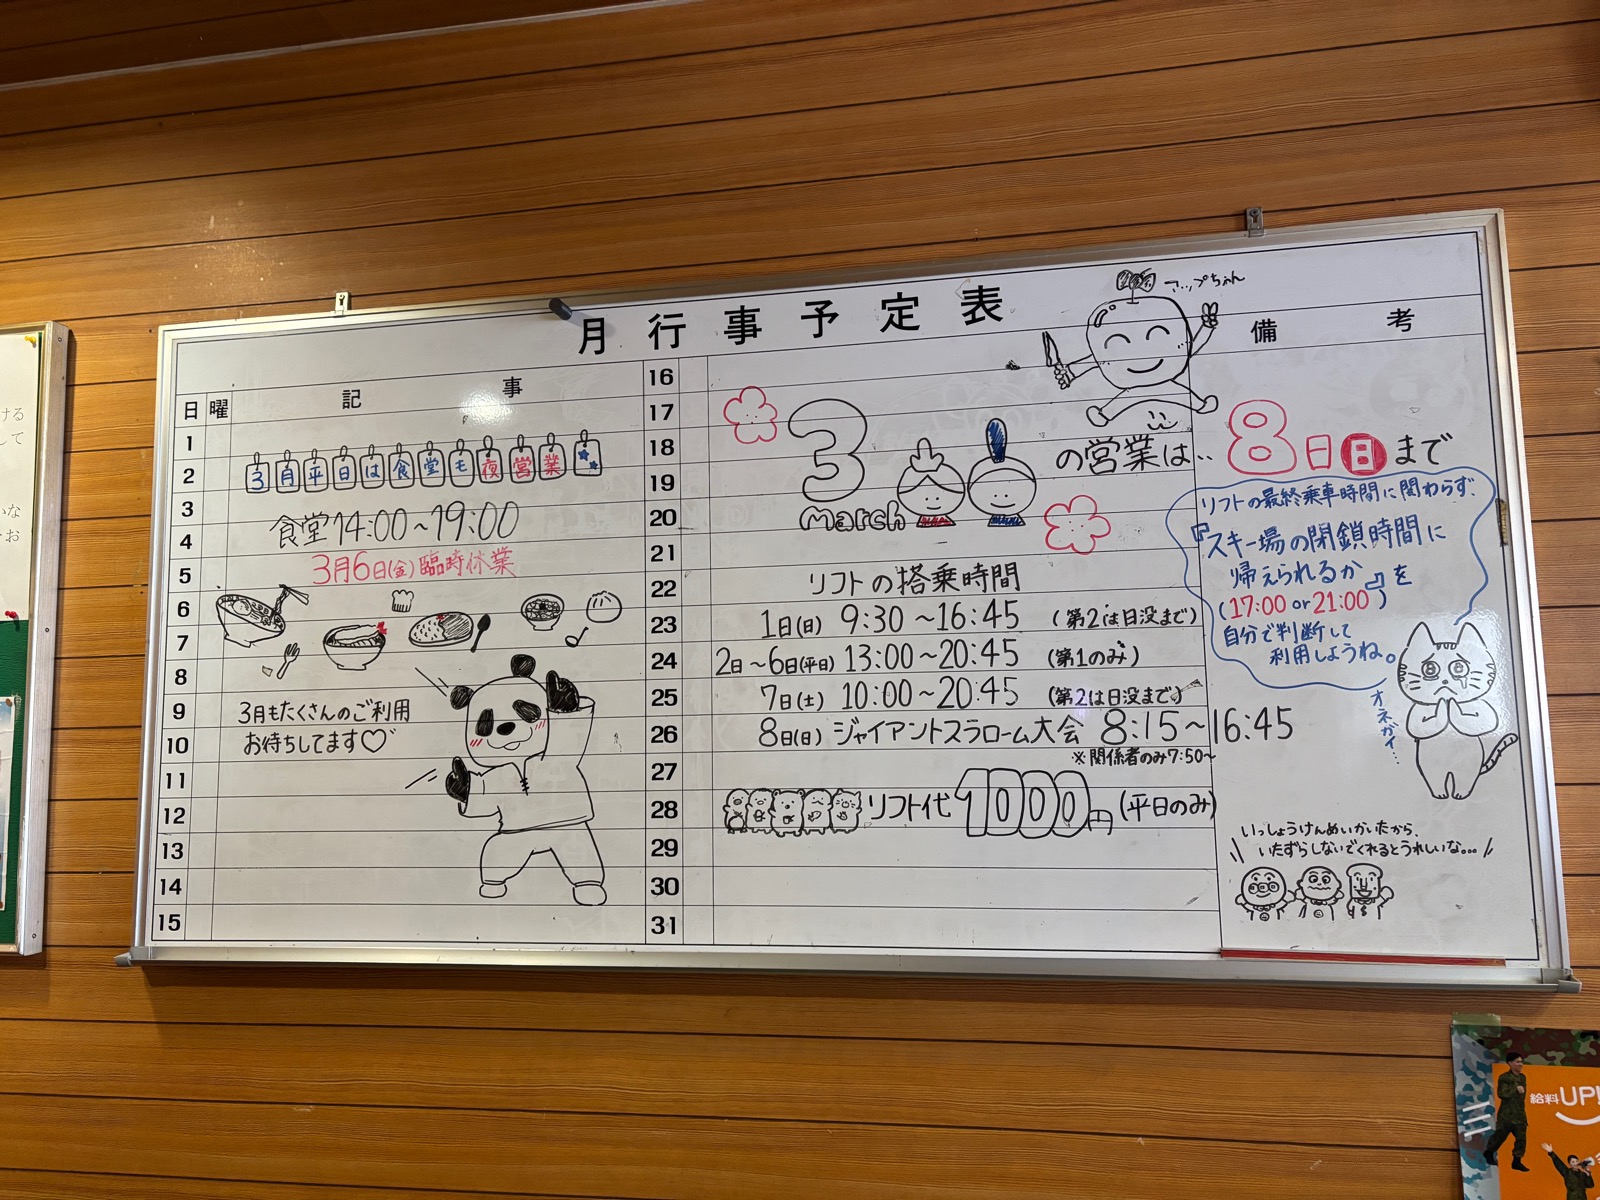 月行事予定表
日 曜 記事
1
2
3
4
5
6
7
8
9
10
11
12
13
14
15
3月平日は食堂モ夜営業
食堂14:00~19:00
3月6日(金)臨時休業
3月もたくさんのご利用
お待ちしてます♡
16
17
18
19
20
21
22
23
24
25
26
27
28
29
30
31
アップちゃん
3
March
の営業は‥8日日まで
リフトの搭乗時間
1日(日) 9:30~16:45 (第2は日没まで)
2日~6日(平日) 13:00~20:45 (第1のみ)
7日(土) 10:00~20:45 (第2は日没まで)
8日(日) ジャイアントスラローム大会 8:15~16:45
※関係者のみ7:50~
リフト代1000円(平日のみ)
備考
リフトの最終乗車時間に関わらず、
『スキー場の閉鎖時間に
帰えられるか』を
(17:00 or 21:00)
自分で判断して
利用しようね。
オネガイ…
いっしょうけんめいかいたから、
いたずらしないでくれるとうれしいな…
ける
して
いな
お
給料UP!